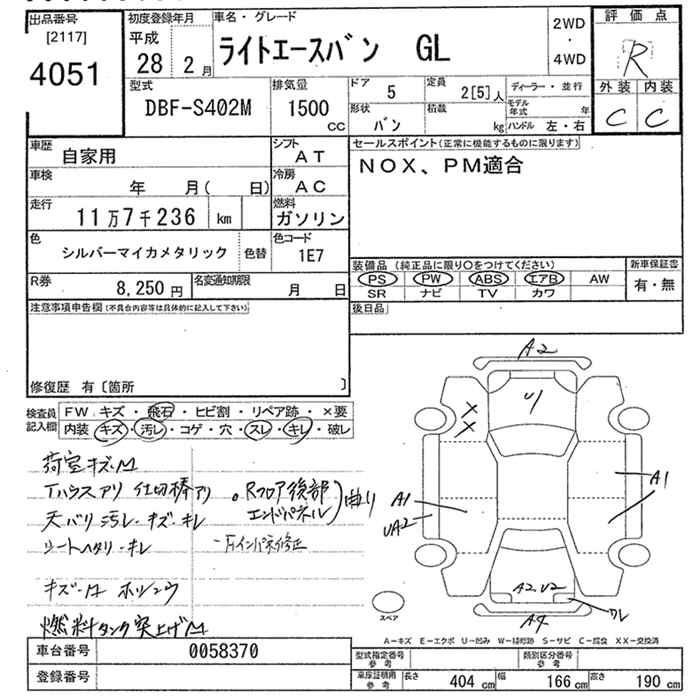 出品番号
[2117]
4051
初度登録年月
平成
28 2月
車名・グレード
ライトエースバン GL
2WD
・
4WD
評価点
R
外装 内装
C C
型式
DBF-S402M
排気量
1500
CC
ドア
5
定員
2[5]人
ディーラー・並行
形状
バン
積載
kg
モデル年式 年
ハンドル 左・右
車歴
自家用
シフト
AT
セールスポイント(正常に機能するものに限ります)
NOX、PM適合
車検
年 月( 日)
冷房
AC
走行
11万7千236 km
燃料
ガソリン
色
シルバーマイカメタリック
色替
色コード
1E7
装備品(純正品に限り○をつけてください)
新車保証書
PS PW ABS エアB AW
有・無
SR ナビ TV カワ
R券
8,250円
名変通知期限
月 日
後日品
注意事項申告欄(不具合内容等は具体的に記入して下さい)
修復歴 有〔箇所 〕
検査員
記入欄
FW キズ・飛石・ヒビ割・リペア跡・×要
内装 キズ・汚レ・コゲ・穴・スレ・キレ・破レ
荷室キズ・M
Tハウスアリ 仕切棒アリ
天バリ汚レ・キズ・キレ
シートヘタリ・キレ
。Rフロア後部
エンドパネル
曲り
インパネ修正
燃料タンク突上ゲM
A2
U1
X
X
A1
A1
UA2
A2.U2
A4
スペア
A-キズ E-エクボ U-凹み W-補修跡 S-サビ C-腐食 XX-交換済
車台番号
0058370
登録番号
型式指定番号
参考
類別区分番号
参考
車庫証明用
参考
長さ 404 cm
幅 166 cm
高さ 190 cm